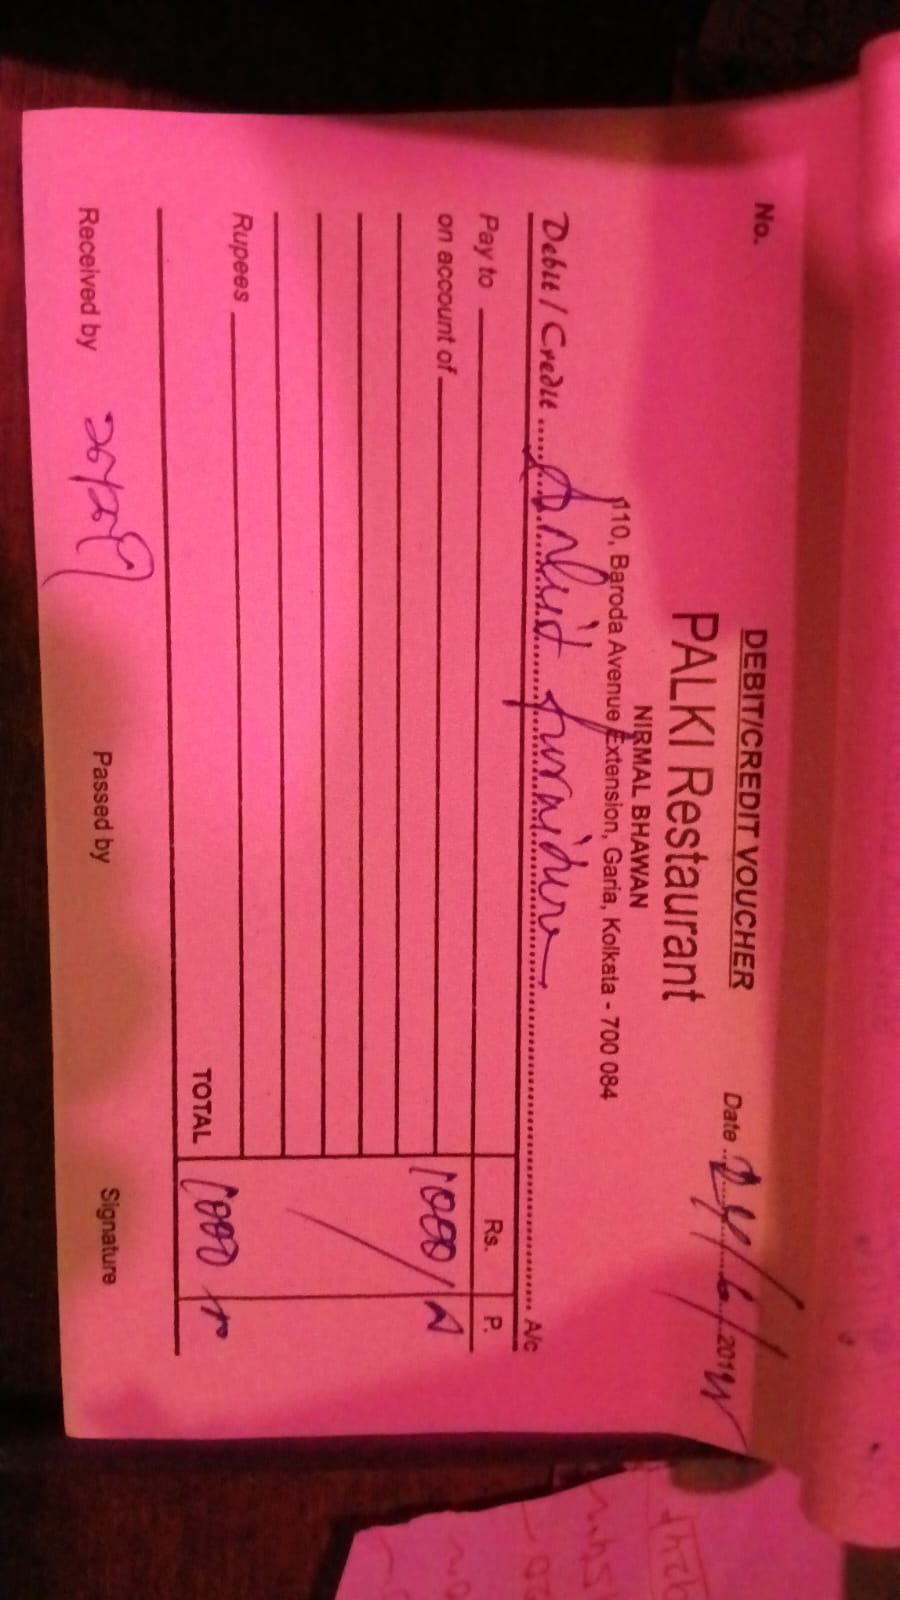 DEBIT/CREDIT VOUCHER
No.
Date 24/6/201
PALKI Restaurant
NIRMAL BHAWAN
110, Baroda Avenue Extension, Garia, Kolkata - 700 084
Debit / Credit furniture A/c
Pay to Rs. P.
on account of 1000/
Rupees
TOTAL 1000
Received by Passed by Signature